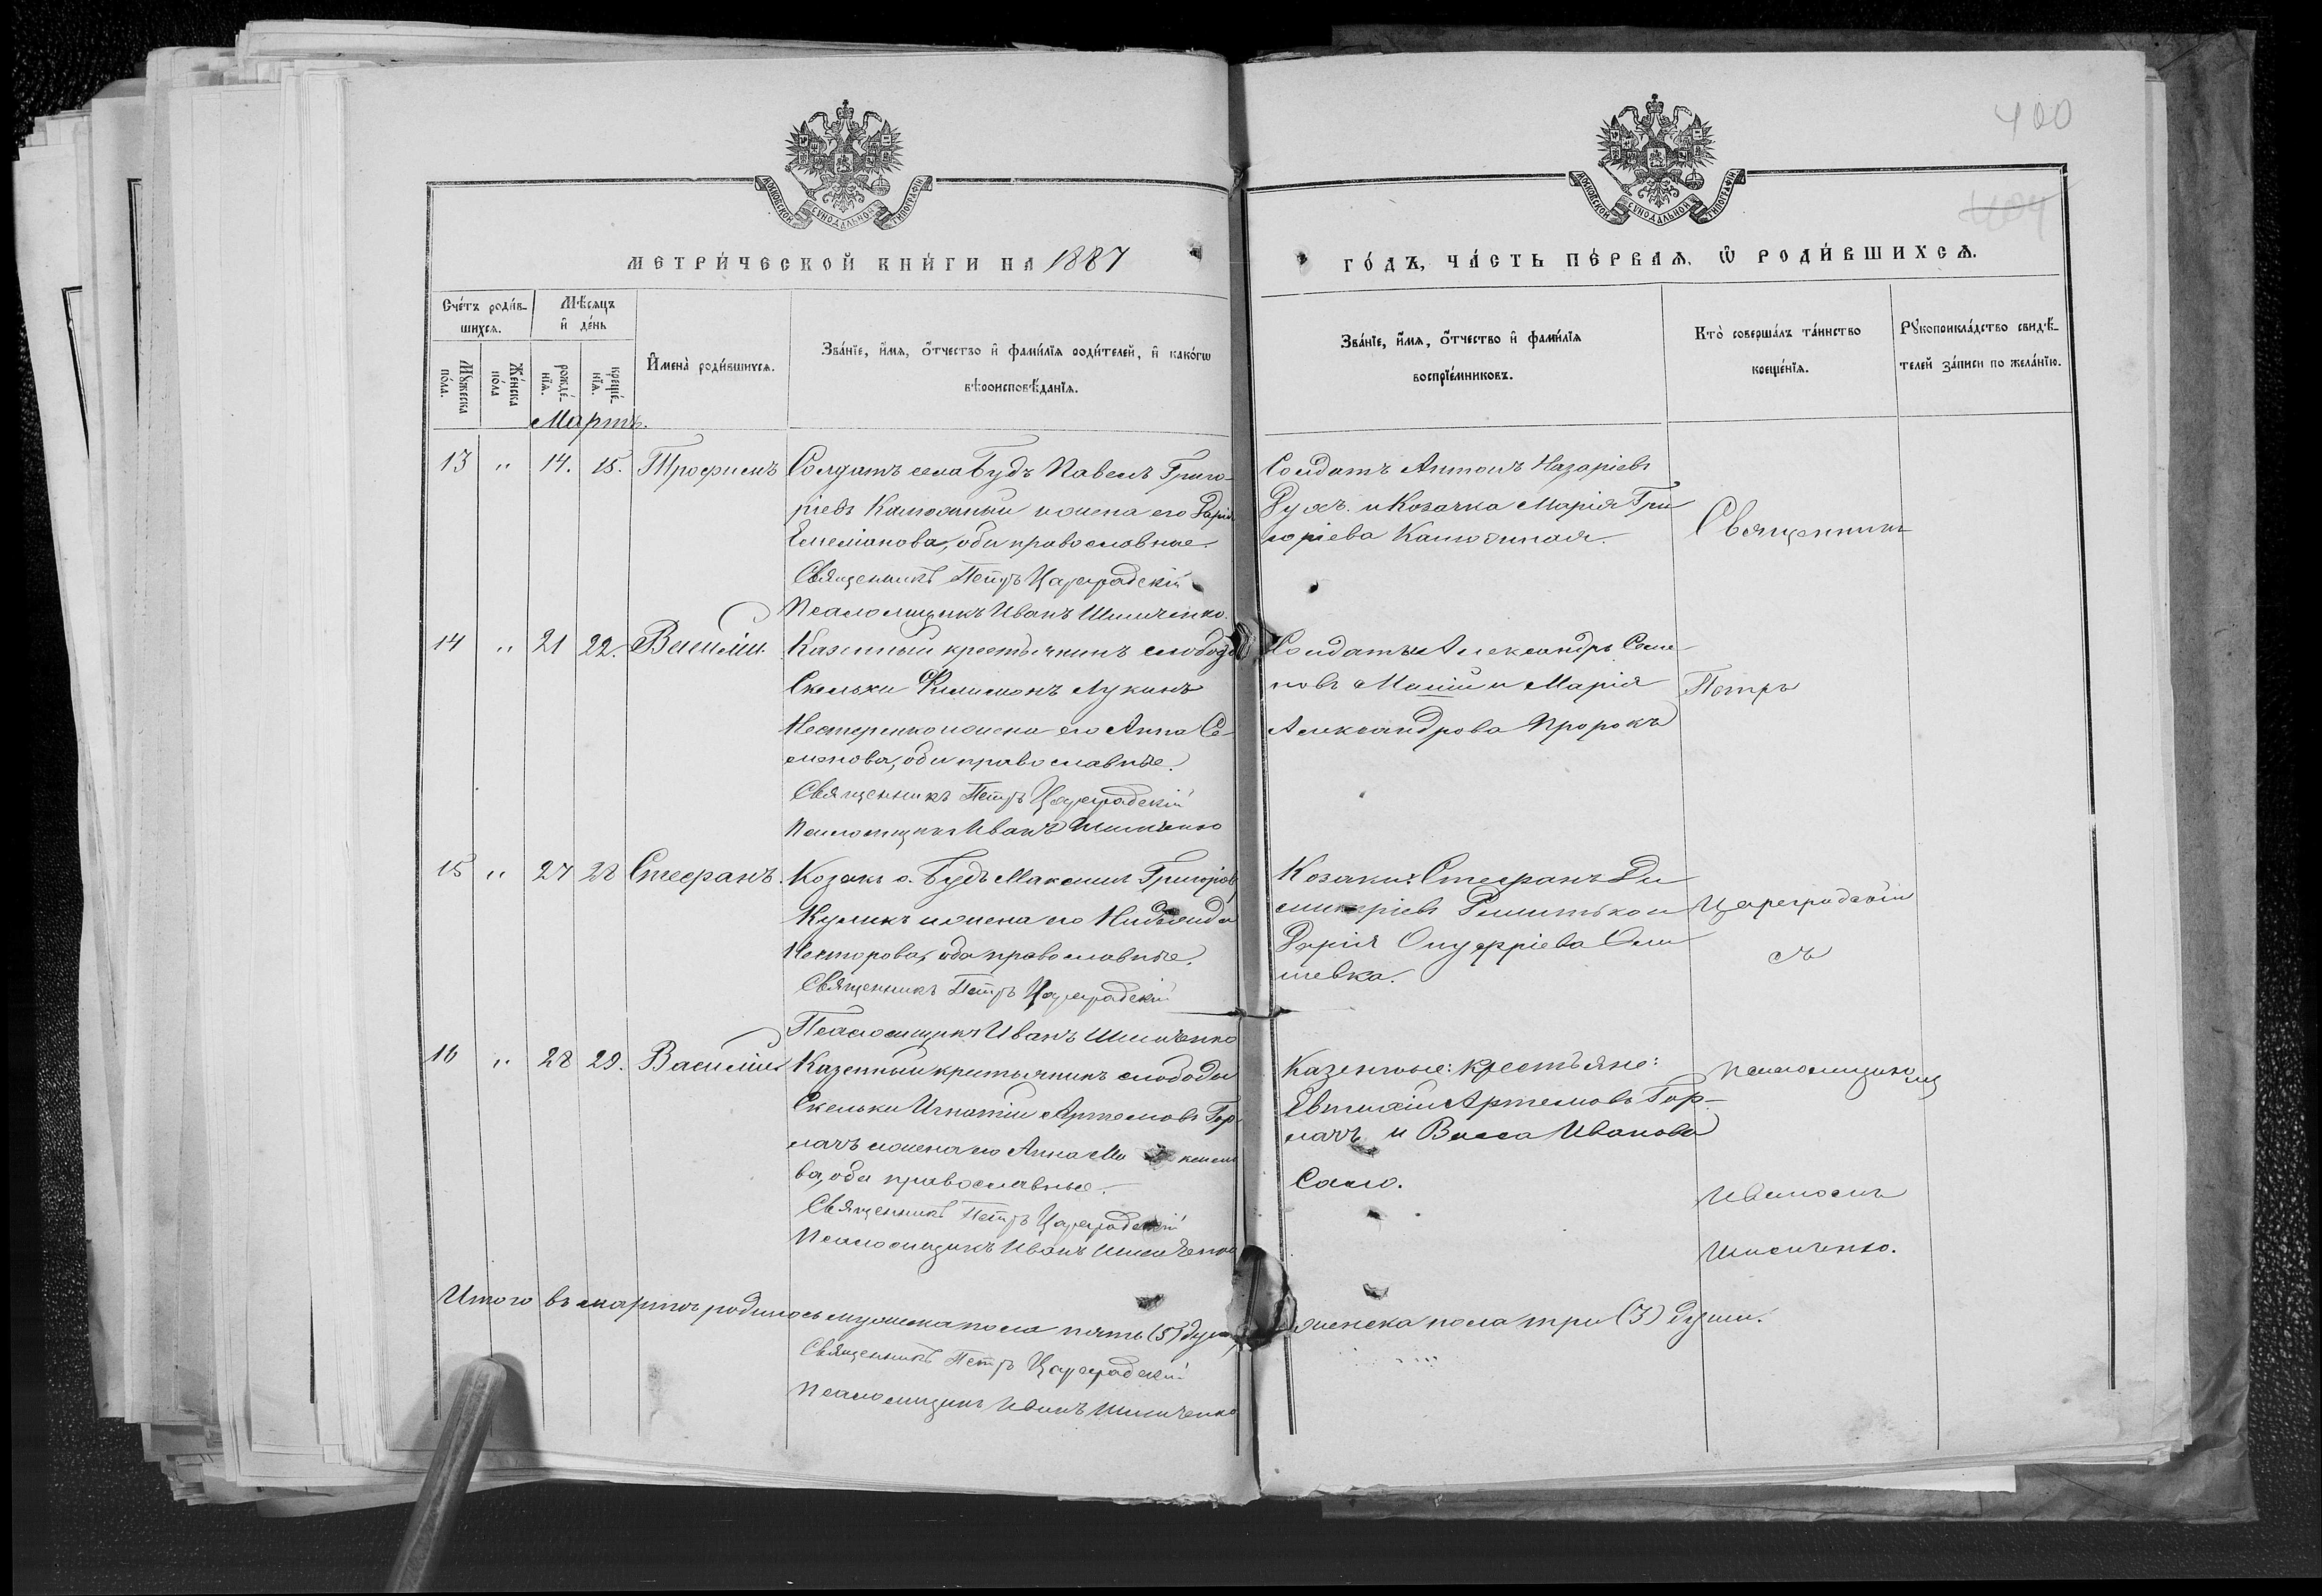 400
404
МОСКОВСКОЙ СѴНОДАЛЬНОЙ ТИПОГРАФІИ
МОСКОВСКОЙ СѴНОДАЛЬНОЙ ТИПОГРАФІИ
МЕТРИ́ЧЕСКОЙ КНИ́ГИ НА 1887
ГО́ДЪ, ЧА́СТЬ ПЕ́РВАЯ, Ѡ РОДИ́ВШИХСЯ.
Сче́тъ роди́в-
шихся.
Мѣ́сяцъ
и҆ де́нь
Мꙋ́жеска
по́ла.
Же́нска
по́ла
рожде́-
нїя.
креще́-
нїя.
И҆мена̀ роди́вшихся.
Зва́нїе, и҆́мя, ѻ҆́тчество и҆ фами́лїя роди́телей, и҆ како́гѡ
вѣроисповѣ́данїя.
Зва́нїе, и҆́мя, ѻ҆́тчество и҆ фами́лїя
воспрїе́мниковъ.
Кто̀ соверша́лъ та́инство
креще́нїя.
Рꙋкоприкла́дство свидѣ́-
телей за́писи по жела́нїю.
Мартъ.
13 " 14. 15. Трофимъ Солдатъ села Будъ Павелъ Григо-
ріевъ и жена его Дарія
Емеліанова, оба православные.
Священникъ Петръ Цареградскій
Псаломщикъ Иванъ Шимченко.
Солдатъ Антонъ Назаріевъ
и Козачка Марія Гри
горіева
Священникъ
14 " 21 22. Василій Казенный крестьянинъ слободы
Скельки Филимонъ Лукинъ
Нестеренко и жена его Анна Се-
менова, оба православные.
Священникъ Петръ Цареградскій
Псаломщикъ Иванъ Шимченко
Солдаты Александръ Семе
новъ и Марія
Александрова Пророкъ
Петръ
15 " 27 28 Стефанъ. Козакъ с. Будъ Максимъ Григоріевъ
Куликъ и жена его
Несторова, оба православные.
Священникъ Петръ Цареградскій
Псаломщикъ Иванъ Шимченко
Козаки: Стефанъ Ди
митріевъ и
Дарія Онуфріева
Цареградскій
съ
16 " 28 29. Василій Казенный крестьянинъ слободы
Скельки Игнатій Артемовъ Гор-
лачъ и жена его Анна
ва, оба православные.
Священникъ Петръ Цареградскій
Псаломщикъ Иванъ Шимченко
Казенные: крестьяне:
Евтихій Артемовъ Гор-
лачъ и Васса Иванова
Сало.
Псаломщикомъ
Иваномъ
Шимченко.
Итого въ мартѣ родилось мужеска пола пять (5) душъ, женска пола три (3) души.
Священникъ Петръ Цареградскій
Псаломщикъ Иванъ Шимченко